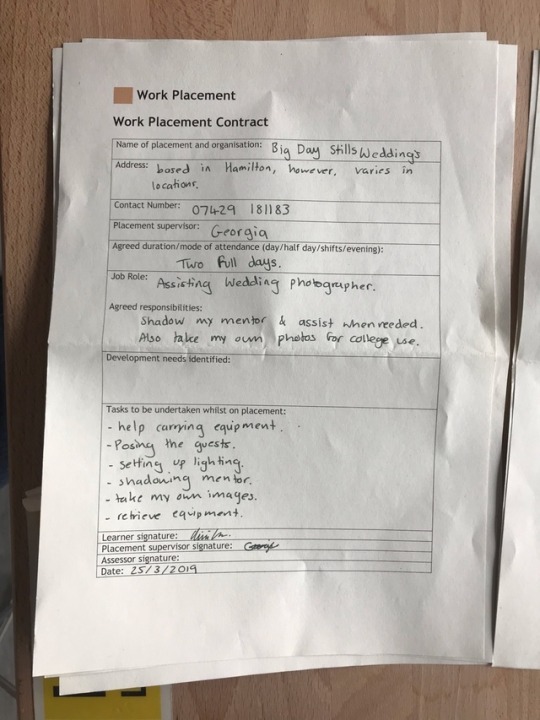 Work Placement
Work Placement Contract
Name of placement and organisation: Big Day Stills Weddings
Address: based in Hamilton, however, varies in
locations.
Contact Number: 07429 181183
Placement supervisor: Georgia
Agreed duration/mode of attendance (day/half day/shifts/evening):
Two full days.
Job Role: Assisting Wedding photographer.
Agreed responsibilities:
Shadow my mentor & assist when needed.
Also take my own photos for college use.
Development needs identified:
Tasks to be undertaken whilst on placement:
- help carrying equipment.
- Posing the guests.
- setting up lighting.
- shadowing mentor.
- take my own images.
- retrieve equipment.
Learner signature:
Placement supervisor signature:
Assessor signature:
Date: 25/3/2019